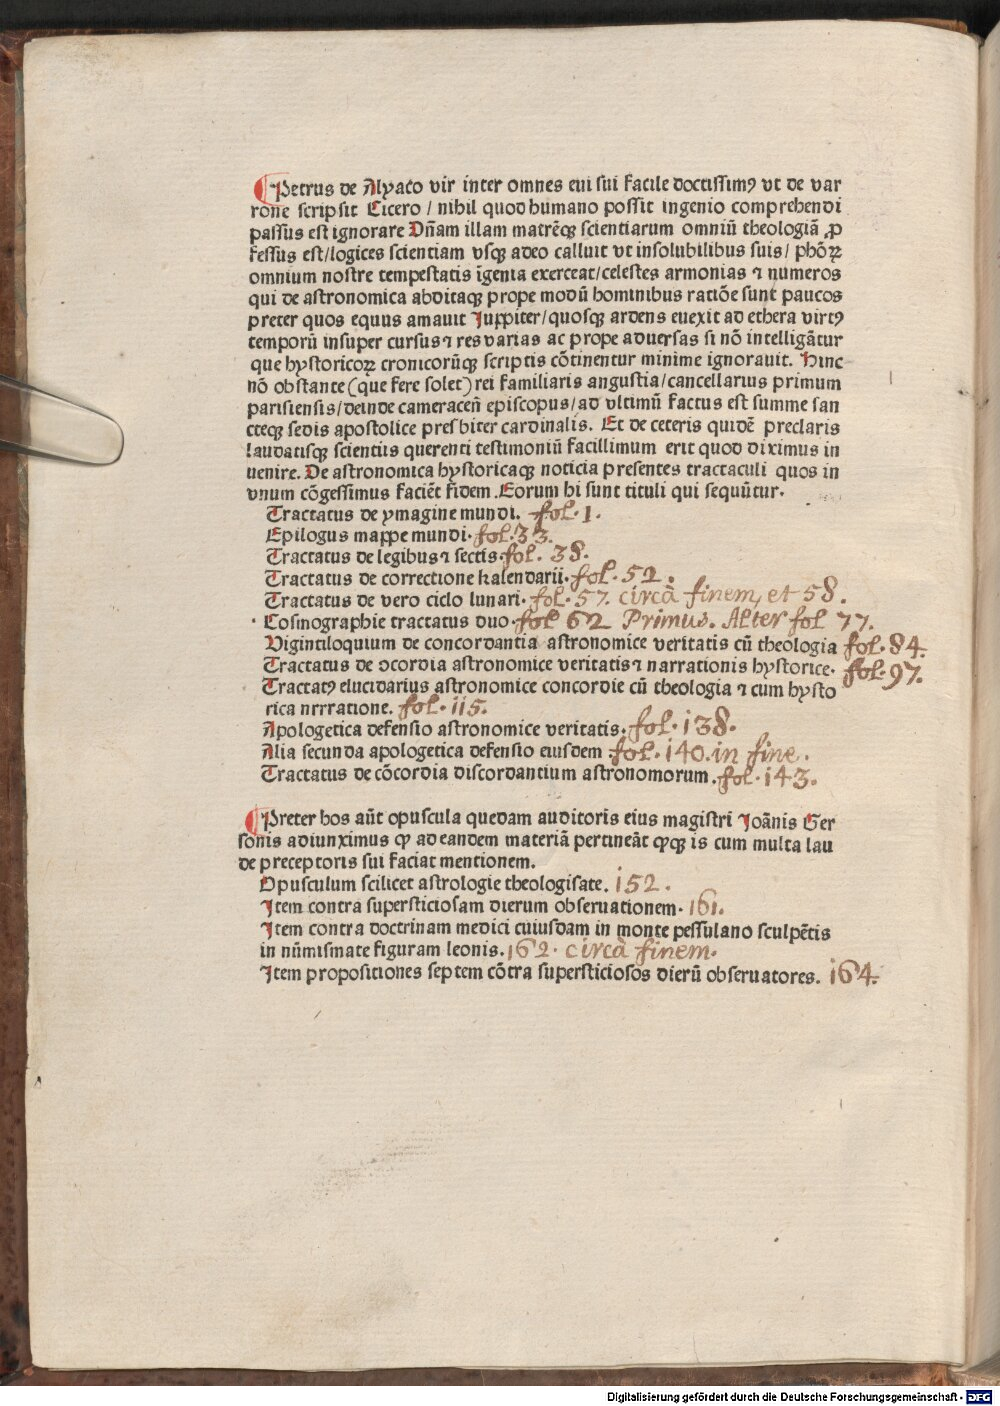 Petrus de Alyaco vir inter omnes eui sui facile doctissimꝰ vt de var
rone scripsit Cicero / nihil quod humano possit ingenio comprehendi
passus est ignorare Dñam illam matrẽqꝫ scientiarum omniũ theologiã ꝓ
fessus est/logices scientiam vsqꝫ adeo calluit vt insolubilibus suis/ phõꝝ
omnium nostre tempestatis ĩgenia exerceat/celestes armonias ⁊ numeros
qui de astronomica abditaqꝫ prope modũ hominibus ratiõe sunt paucos
preter quos equus amauit Juppiter/quosqꝫ ardens euexit ad ethera virtꝰ
temporũ insuper cursus ⁊ res varias ac prope aduersas si nõ intelligãtur
que hystoricoꝝ cronicorũqꝫ scriptis cõtinentur minime ignorauit. Hinc
nõ obstante (que fere solet) rei familiaris angustia/cancellarius primum
parisiensis/deinde cameraceñ episcopus/ad vltimũ factus est summe san
cteqꝫ sedis apostolice presbiter cardinalis. Et de ceteris quidẽ preclaris
laudatisqꝫ scientiis querenti testimoniũ facillimum erit quod diximus in
uenire. De astronomica hystoricaqꝫ noticia presentes tractaculi quos in
vnum cõgessimus faciẽt fidem .Eorum hi sunt tituli qui sequũtur.
Tractatus de ymagine mundi. fol. 1.
Epilogus mappe mundi. fol. 33.
Tractatus de legibus ⁊ sectis. fol. 38.
Tractatus de correctione kalendarii. fol. 52.
Tractatus de vero ciclo lunari. fol. 57. circà finem, et 58.
Cosmographie tractatus duo. fol 62 Primus. Alter fol 77.
Vigintiloquium de concordantia astronomice veritatis cũ theologia fol. 84.
Tractatus de ↄcordia astronomice veritatis ⁊ narrationis hystorice. fol. 97.
Tractatꝰ elucidarius astronomice concordie cũ theologia ⁊ cum hysto
rica nrrratione. fol. 115.
Apologetica defensio astronomice veritatis. fol. 138.
Alia secunda apologetica defensio eiusdem fol. 140. in fine.
Tractatus de cõcordia discordantium astronomorum. fol. 143.
Preter hos aũt opuscula quedam auditoris eius magistri Joãnis Ger
sonis adiunximus ꝙ ad eandem materiã pertineãt ꝙqꝫ is cum multa lau
de preceptoris sui faciat mentionem.
Opusculum scilicet astrologie theologisate. 152.
Item contra supersticiosam dierum obseruationem. 161.
Item contra doctrinam medici cuiusdam in monte pessulano sculpẽtis
in nũmismate figuram leonis. 162. circà finem.
Item propositiones septem cõtra supersticiosos dierũ obseruatores. 164.
Digitalisierung gefördert durch die Deutsche Forschungsgemeinschaft - DFG